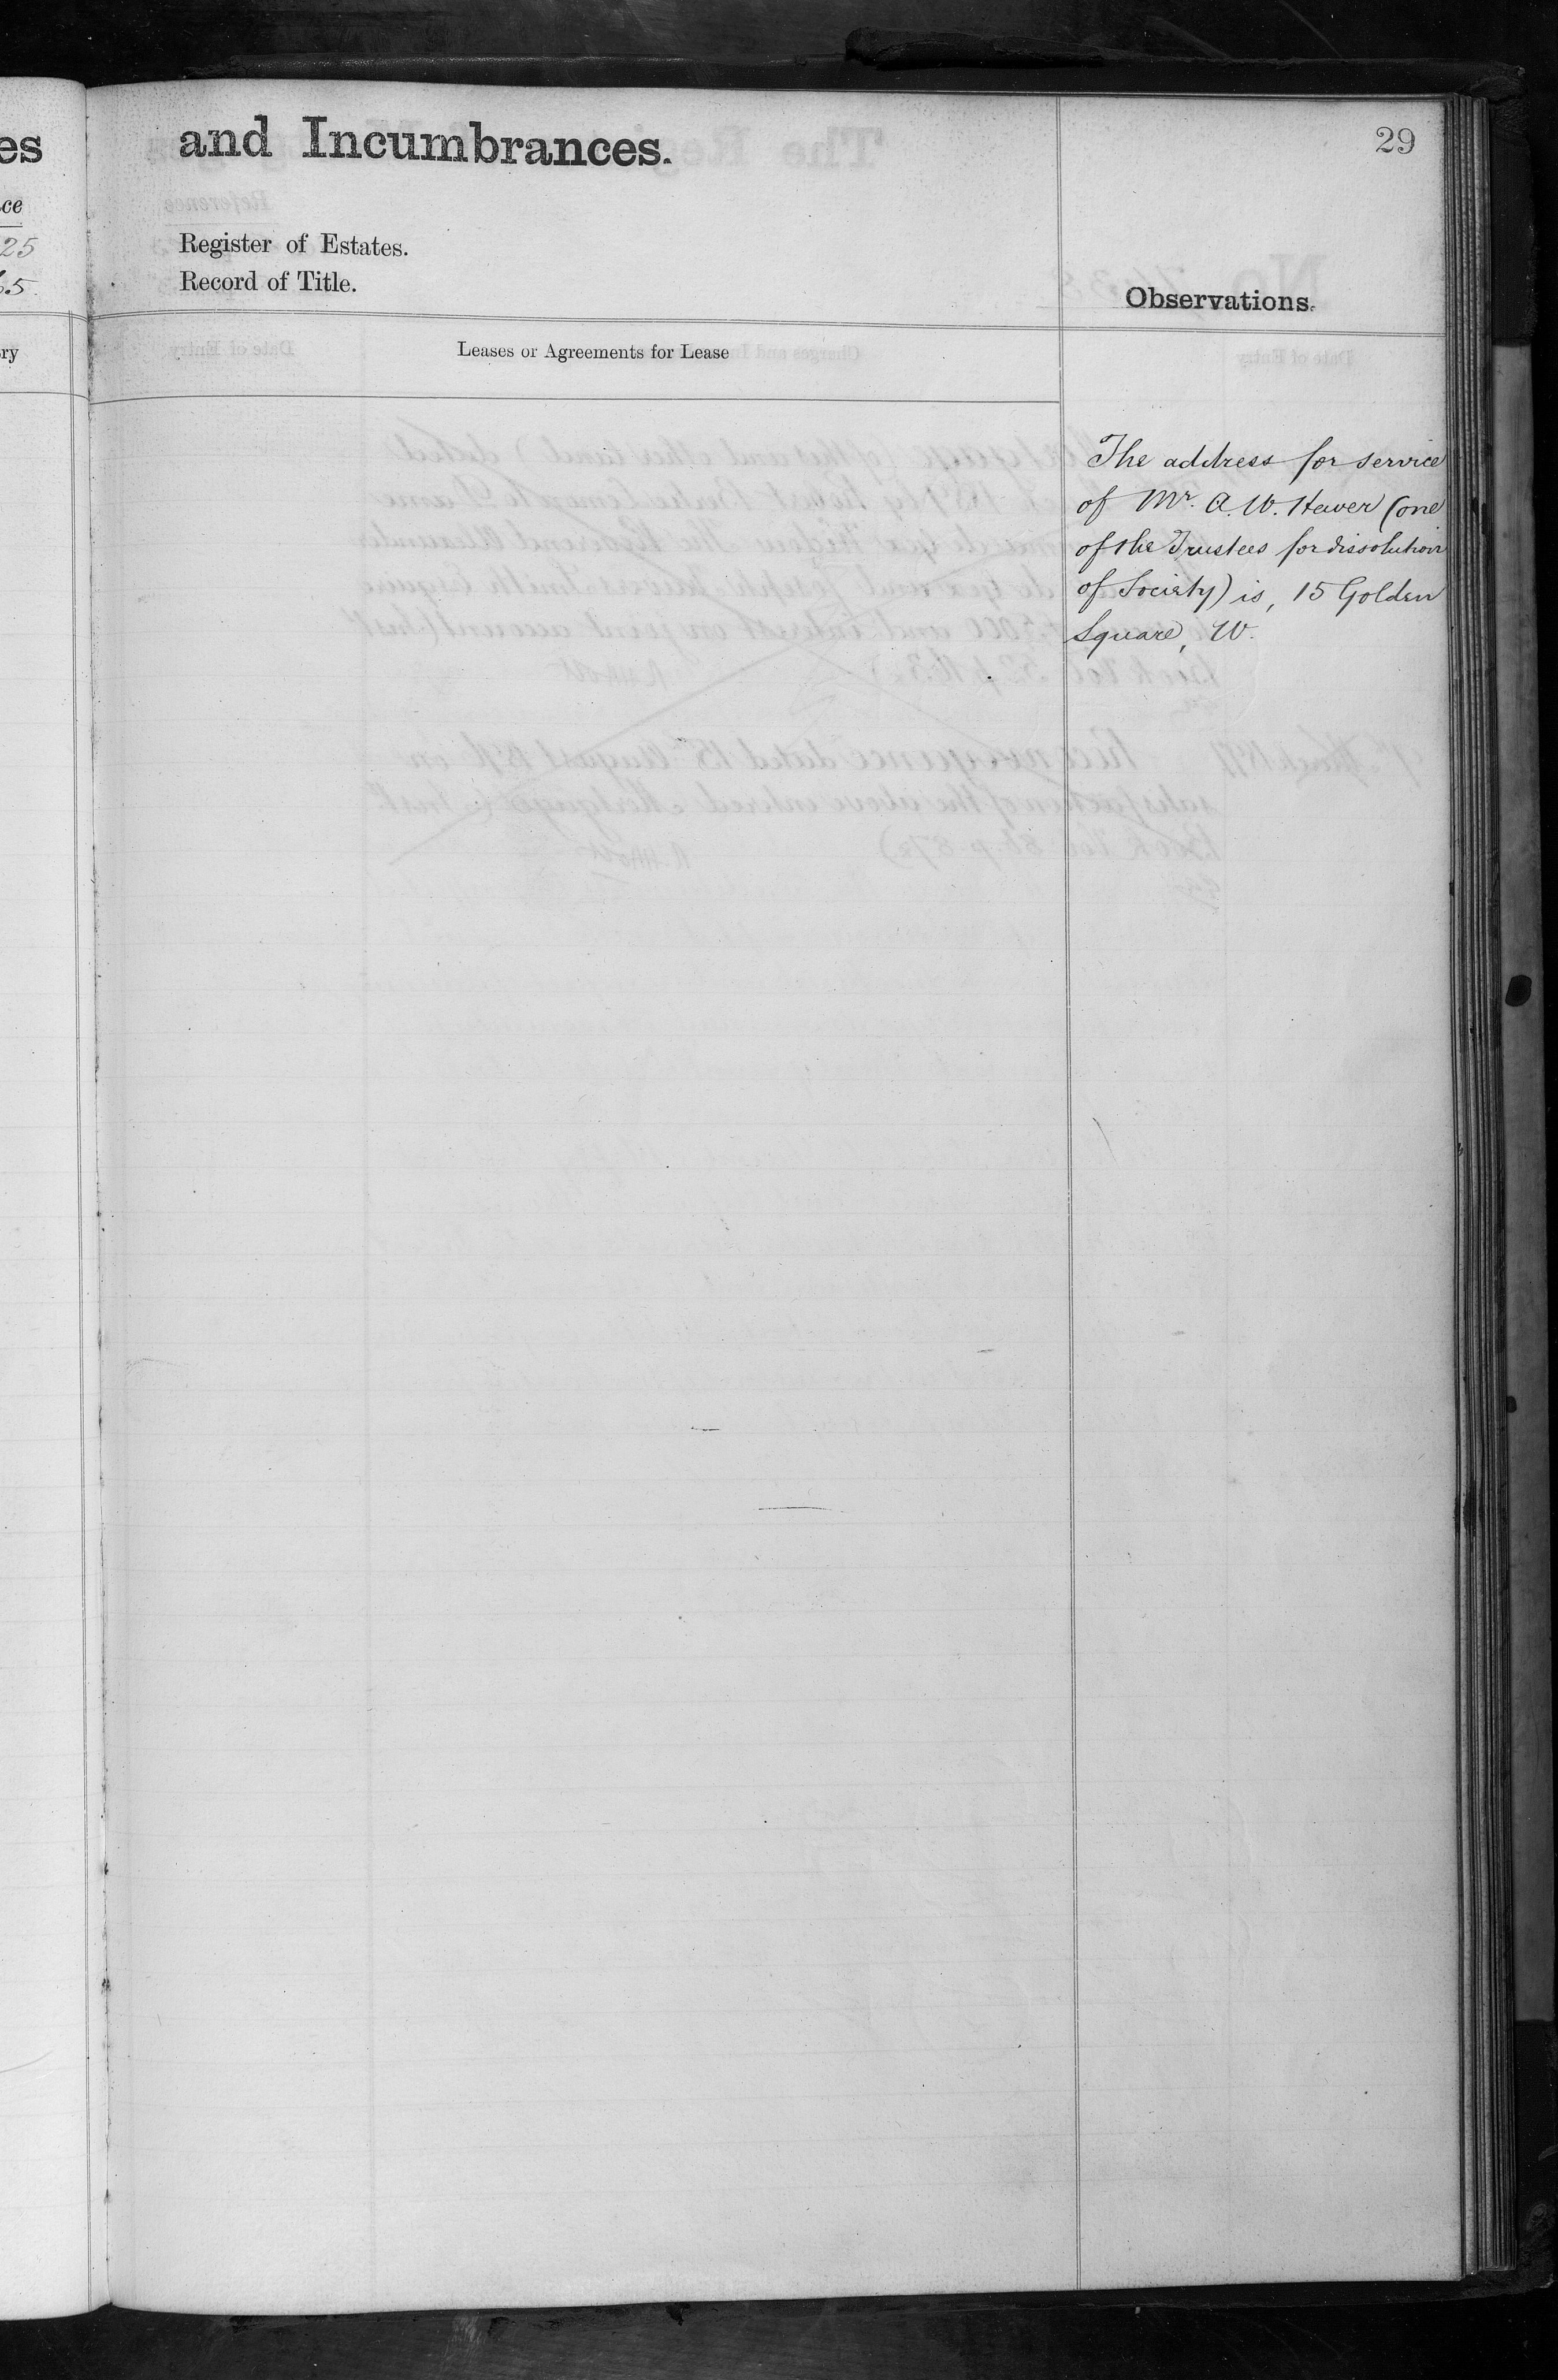 and Incumbrances.
29
Register of Estates.
Record of Title.
Observations.
Leases or Agreements for Lease
The address for service
of Mr. A. W. Hewer (one
of the Trustees for dissolution
of Society) is, 15 Golden
Square, W.
es
ce
25
65
ry